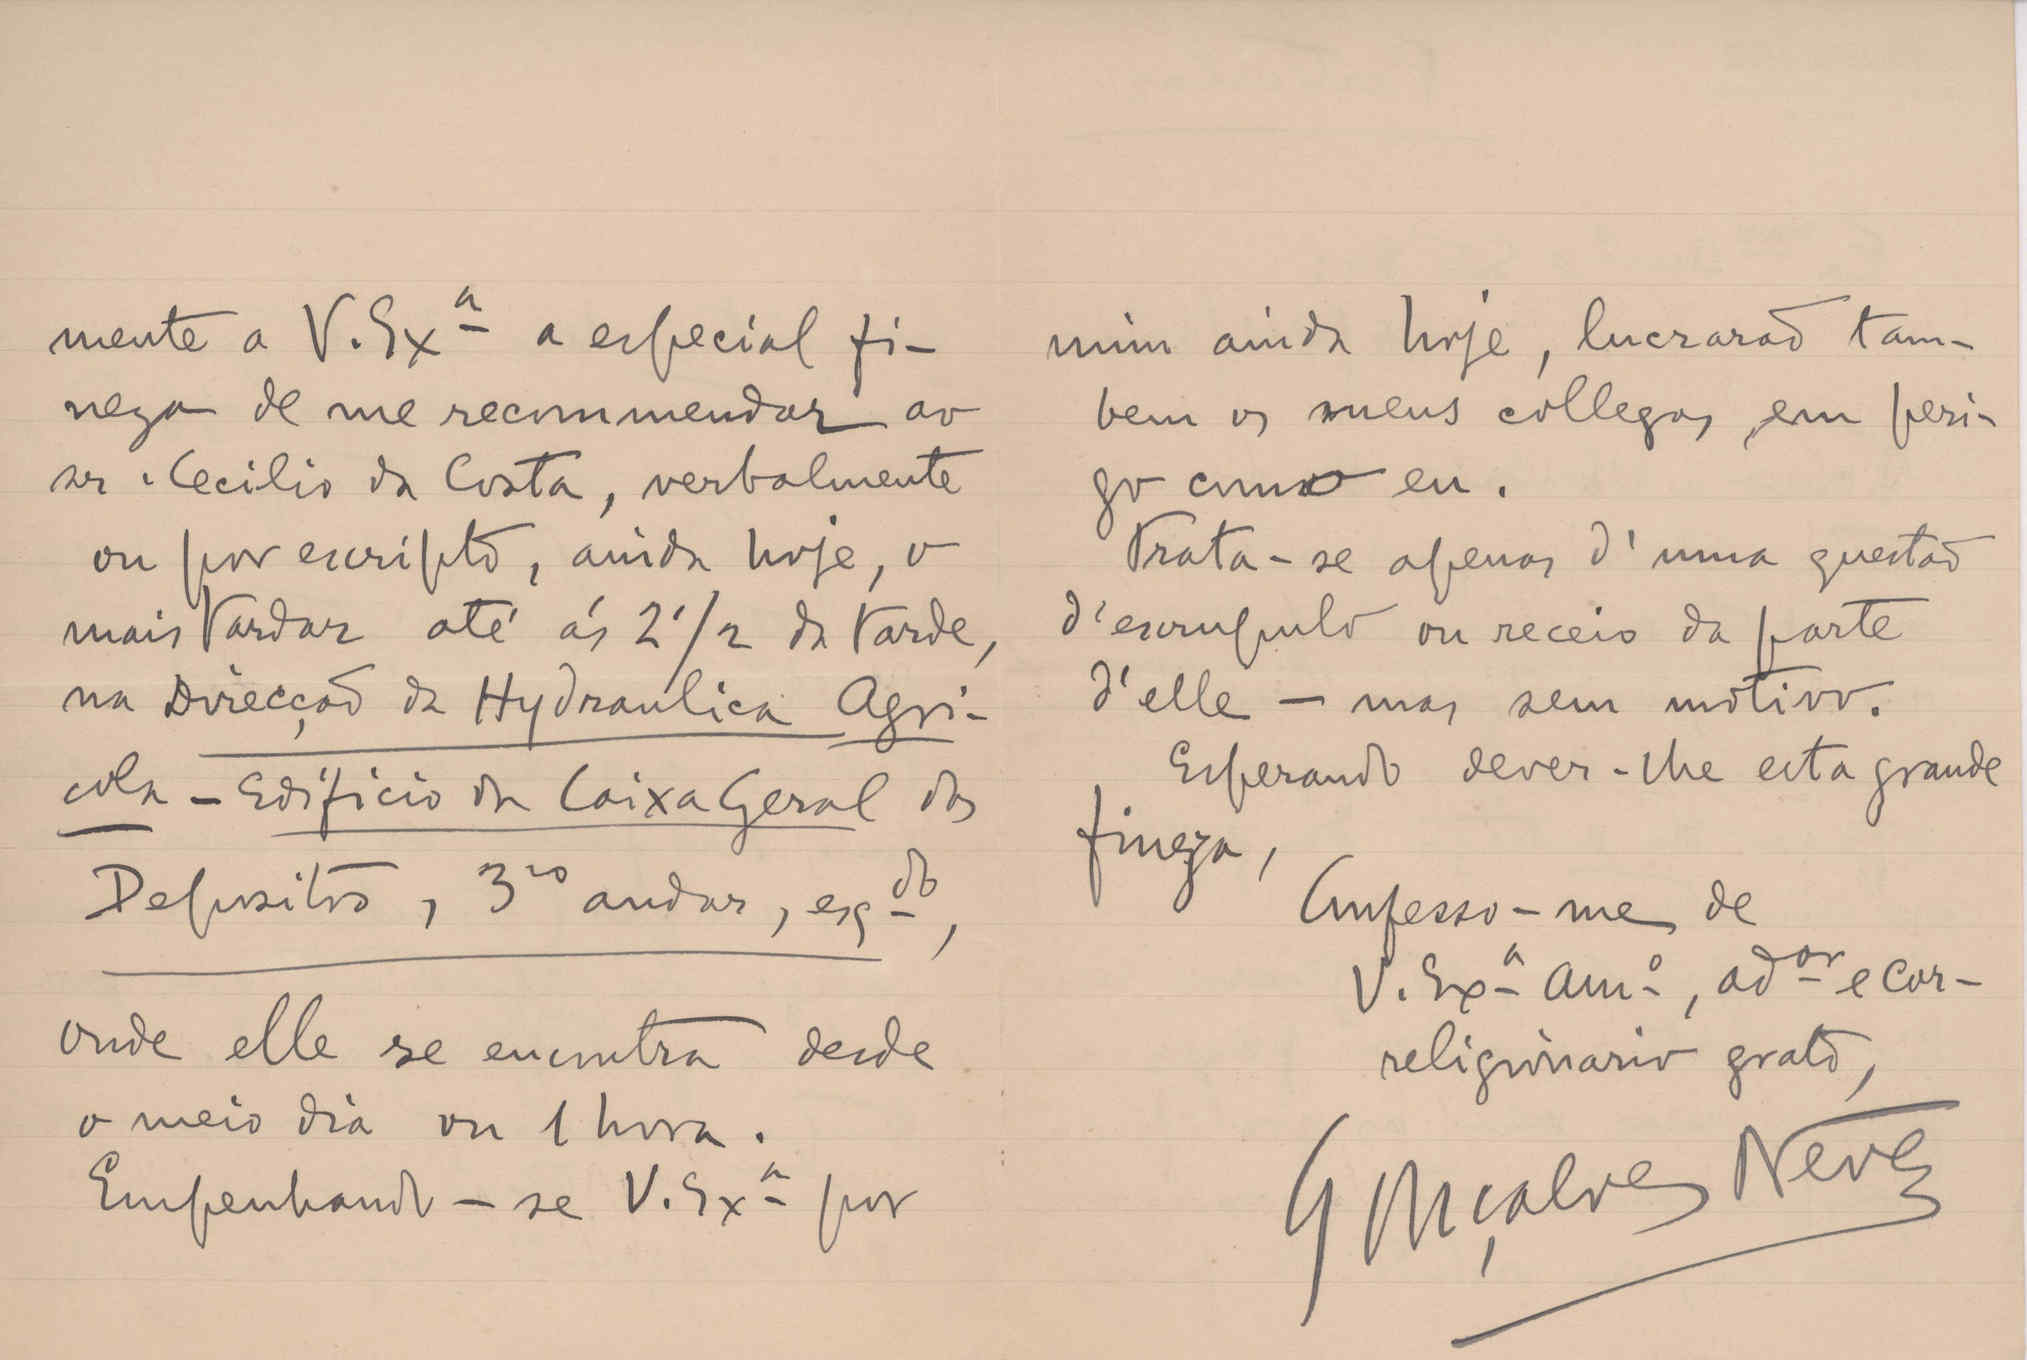 mente a V. Exª a especial fi-
neza de me recommendar ao
sr. Cecilio da Costa, verbalmente
ou por escripto, ainda hoje, o
mais tardar até ás 2 1/2 da tarde,
na Direcção da Hydraulica Agri-
cola - Edificio da Caixa Geral dos
Depositos, 3ro andar, esqdo,
onde elle se encontra desde
o meio dia ou 1 hora.
Empenhando-se V. Exª por
mim ainda hoje, lucrarão tam-
bem os meus collegas, em peri-
go como eu.
Trata-se apenas d'uma questão
d'escrupulo ou receio da parte
d'elle - mas sem motivo.
Esperando dever-lhe esta grande
fineza,
Confesso-me de
V. Exª amº, ador e cor-
religionario grato,
Gonçalves Neves